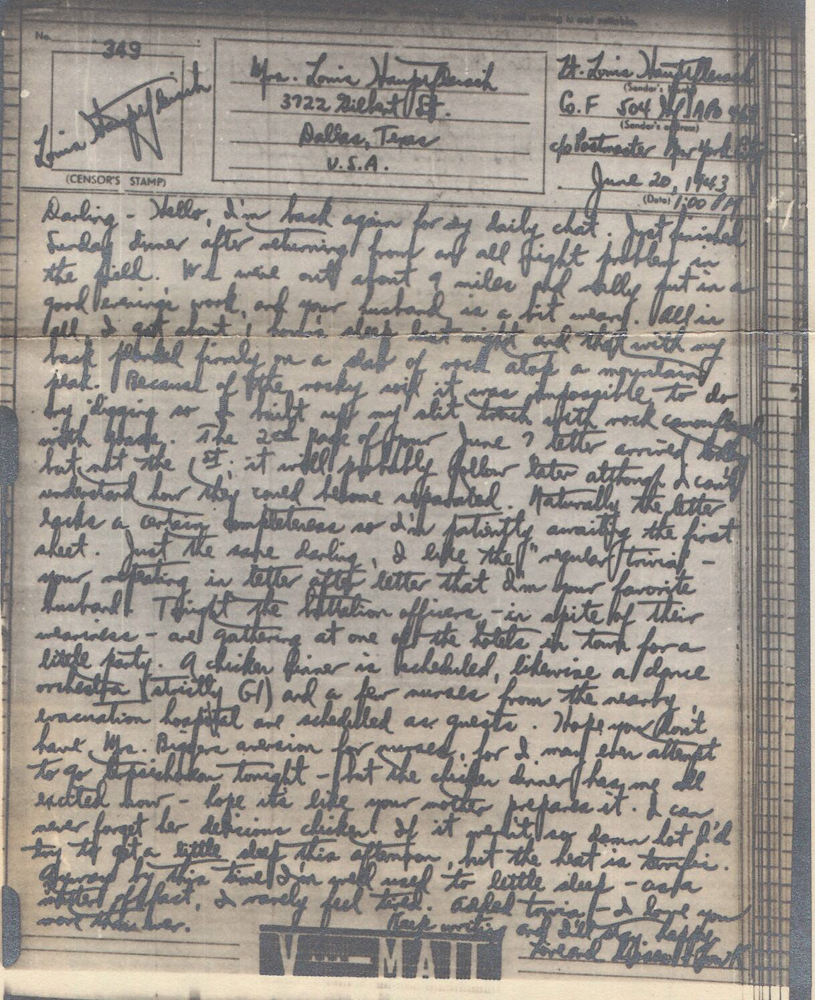 No.
349
Louis Hauptfleisch
(CENSOR'S STAMP)
Mrs. Louis Hauptfleisch
3722 Gilbert St.
Dallas, Texas
U.S.A.
Lt. Louis Hauptfleisch
(Sender's
Co. F 504 APO
(Sender's address)
c/o Postmaster New York City
June 20, 1943
(Date) 1:00 PM
Darling - Hello, I'm back again for my daily chat. Just finished
Sunday dinner after returning from an all night problem in
the field. We were out about 9 miles and really put in a
good evening's work, and your husband is a bit weary. All in
all I got about 1 hour's sleep last night and that with my
back planted firmly on a slab of rock atop a mountain
peak. Because of the rocky soil it was impossible to do
any digging so I built up my slit trench with rock camouflaged
with grass. The 2nd page of your June 7 letter arrived today
but not the 1st; it will probably follow later although I can't
understand how they could become separated. Naturally the letter
lacks a certain completeness so I'm patiently awaiting the first
sheet. Just the same darling, I love the "regular trivia" -
your repeating in letter after letter that I'm your favorite
husband. Tonight the battalion officers - in spite of their
weariness - are gathering at one of the hotels in town for a
little party. A chicken dinner is scheduled, likewise a dance
orchestra (strictly GI) and a few nurses from the nearby
evacuation hospital are scheduled as guests. Hope you don't
have Mrs. aversion for nurses, for I may even attempt
to go tonight - but the chicken dinner has me all
excited now - hope it's like your mother prepares it. I can
never forget her delicious chicken. If it weren't so damn hot I'd
try to get a little sleep this afternoon, but the heat is terrific.
Anyway by this time I'm well used to little sleep - as a
matter of fact, I rarely feel tired. Added trivia - I love you
more than ever. Keep writing and I'll stay happy.
Love and
V MAIL